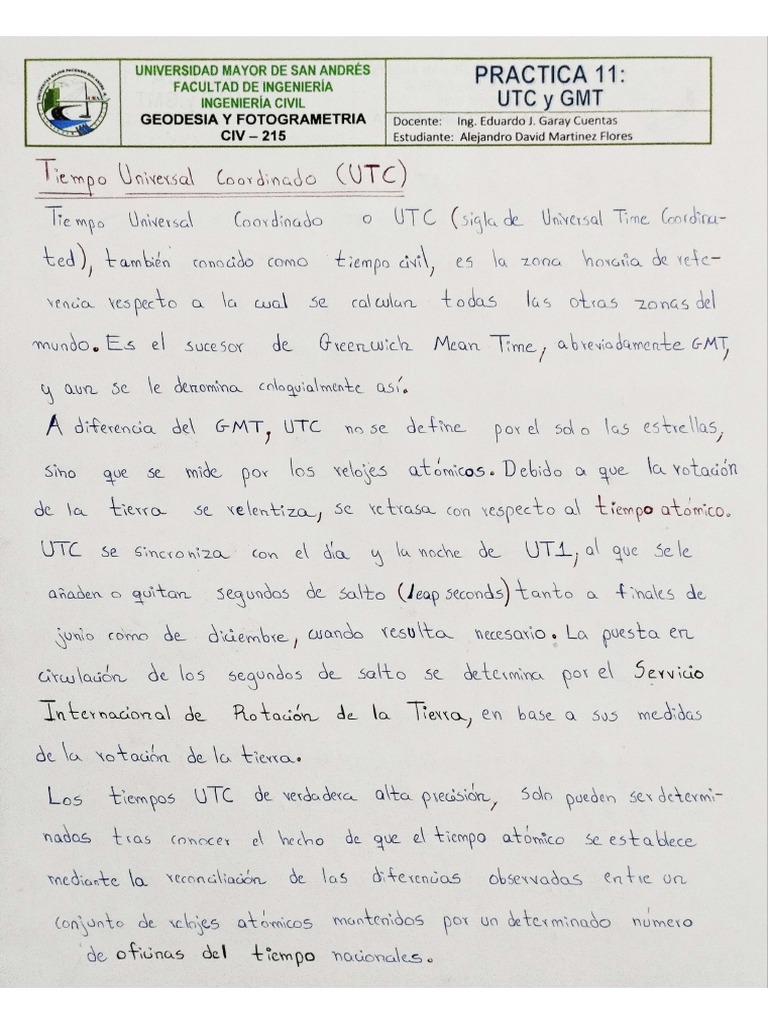 UNIVERSIDAD MAYOR DE SAN ANDRÉS
FACULTAD DE INGENIERÍA
INGENIERÍA CIVIL
GEODESIA Y FOTOGRAMETRIA
CIV – 215
PRACTICA 11:
UTC y GMT
Docente: Ing. Eduardo J. Garay Cuentas
Estudiante: Alejandro David Martinez Flores
Tiempo Universal Coordinado (UTC)
Tiempo Universal Coordinado o UTC (sigla de Universal Time Coordina-
ted), también conocido como tiempo civil, es la zona horaria de refe-
rencia respecto a la cual se calculan todas las otras zonas del
mundo. Es el sucesor de Greenwich Mean Time, abreviadamente GMT,
y aun se le denomina coloquialmente así.
A diferencia del GMT, UTC no se define por el solo las estrellas,
sino que se mide por los relojes atómicos. Debido a que la rotación
de la tierra se relentiza, se retrasa con respecto al tiempo atómico.
UTC se sincroniza con el día y la noche de UT1, al que se le
añaden o quitan segundos de salto (leap seconds) tanto a finales de
junio como de diciembre, cuando resulta necesario. La puesta en
circulación de los segundos de salto se determina por el Servicio
Internacional de Rotación de la Tierra, en base a sus medidas
de la rotación de la tierra.
Los tiempos UTC de verdadera alta precisión, solo pueden ser determi-
nados tras conocer el hecho de que el tiempo atómico se establece
mediante la reconciliación de las diferencias observadas entre un
conjunto de relojes atómicos mantenidos por un determinado número
de oficinas del tiempo nacionales.